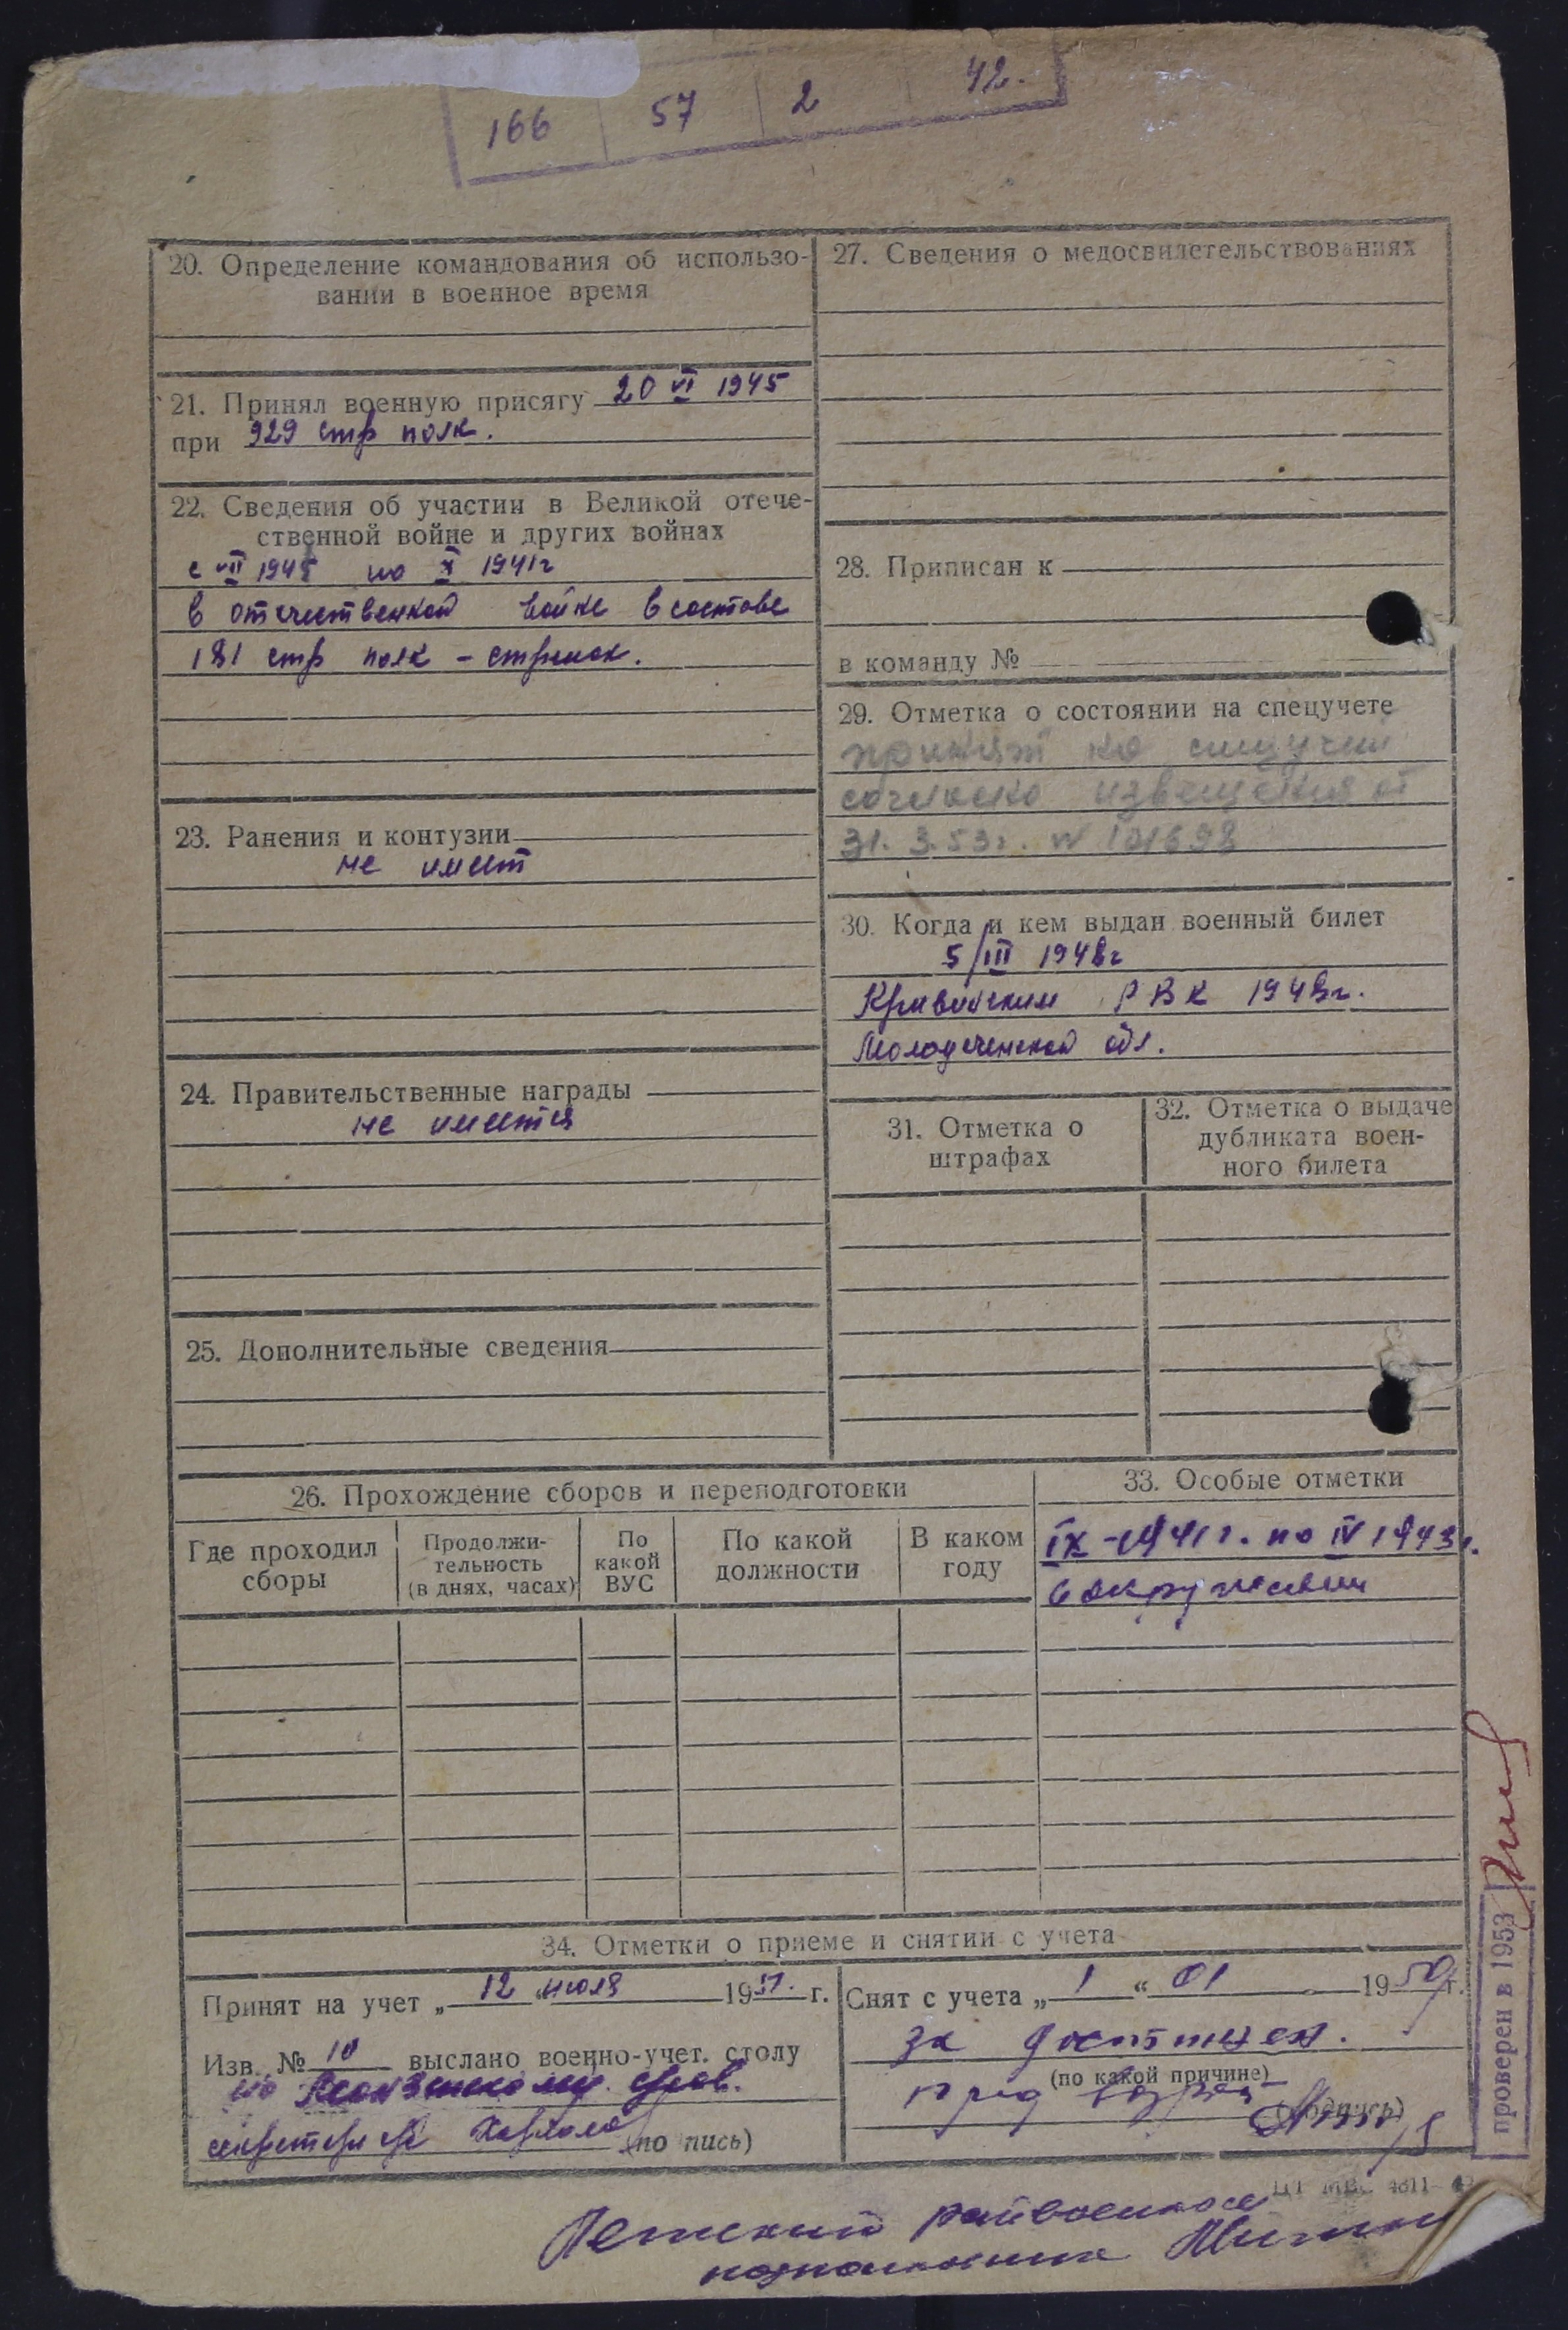 166 57 2 42.
20. Определение командования об использо-
вании в военное время
21. Принял военную присягу 20 VI 1945
при 929 стр полк.
22. Сведения об участии в Великой отече-
ственной войне и других войнах
с VII 1941 по X 1941г
в отечественной войне в составе
181 стр полк - стрелок.
23. Ранения и контузии
не имеет
24. Правительственные награды
не имеется
25. Дополнительные сведения
27. Сведения о медосвидетельствованиях
28. Приписан к
в команду №
29. Отметка о состоянии на спецучете
принят на спецучет
согласно извещения от
31. 3. 53г. N 101698
30. Когда и кем выдан военный билет
5/III 1948г
РВК 1948г.
Молодеченской обл.
31. Отметка о
штрафах
32. Отметка о выдаче
дубликата воен-
ного билета
26. Прохождение сборов и переподготовки
Где проходил
сборы
Продолжи-
тельность
(в днях, часах)
По
какой
ВУС
По какой
должности
В каком
году
33. Особые отметки
IX-1941г. по IV 1943г.
в окружении
34. Отметки о приеме и снятии с учета
Принят на учет „ 12 “ июля 1951. г.
Изв. № 10 выслано военно-учет. столу
по
секретарь (по пись)
Снят с учета „ 1 “ 01 1950 г.
за достижен.
(по какой причине)
пред возраст
(подпись)
проверен в 1953
ЦТ МВС 4811
райвоенком
подполковник